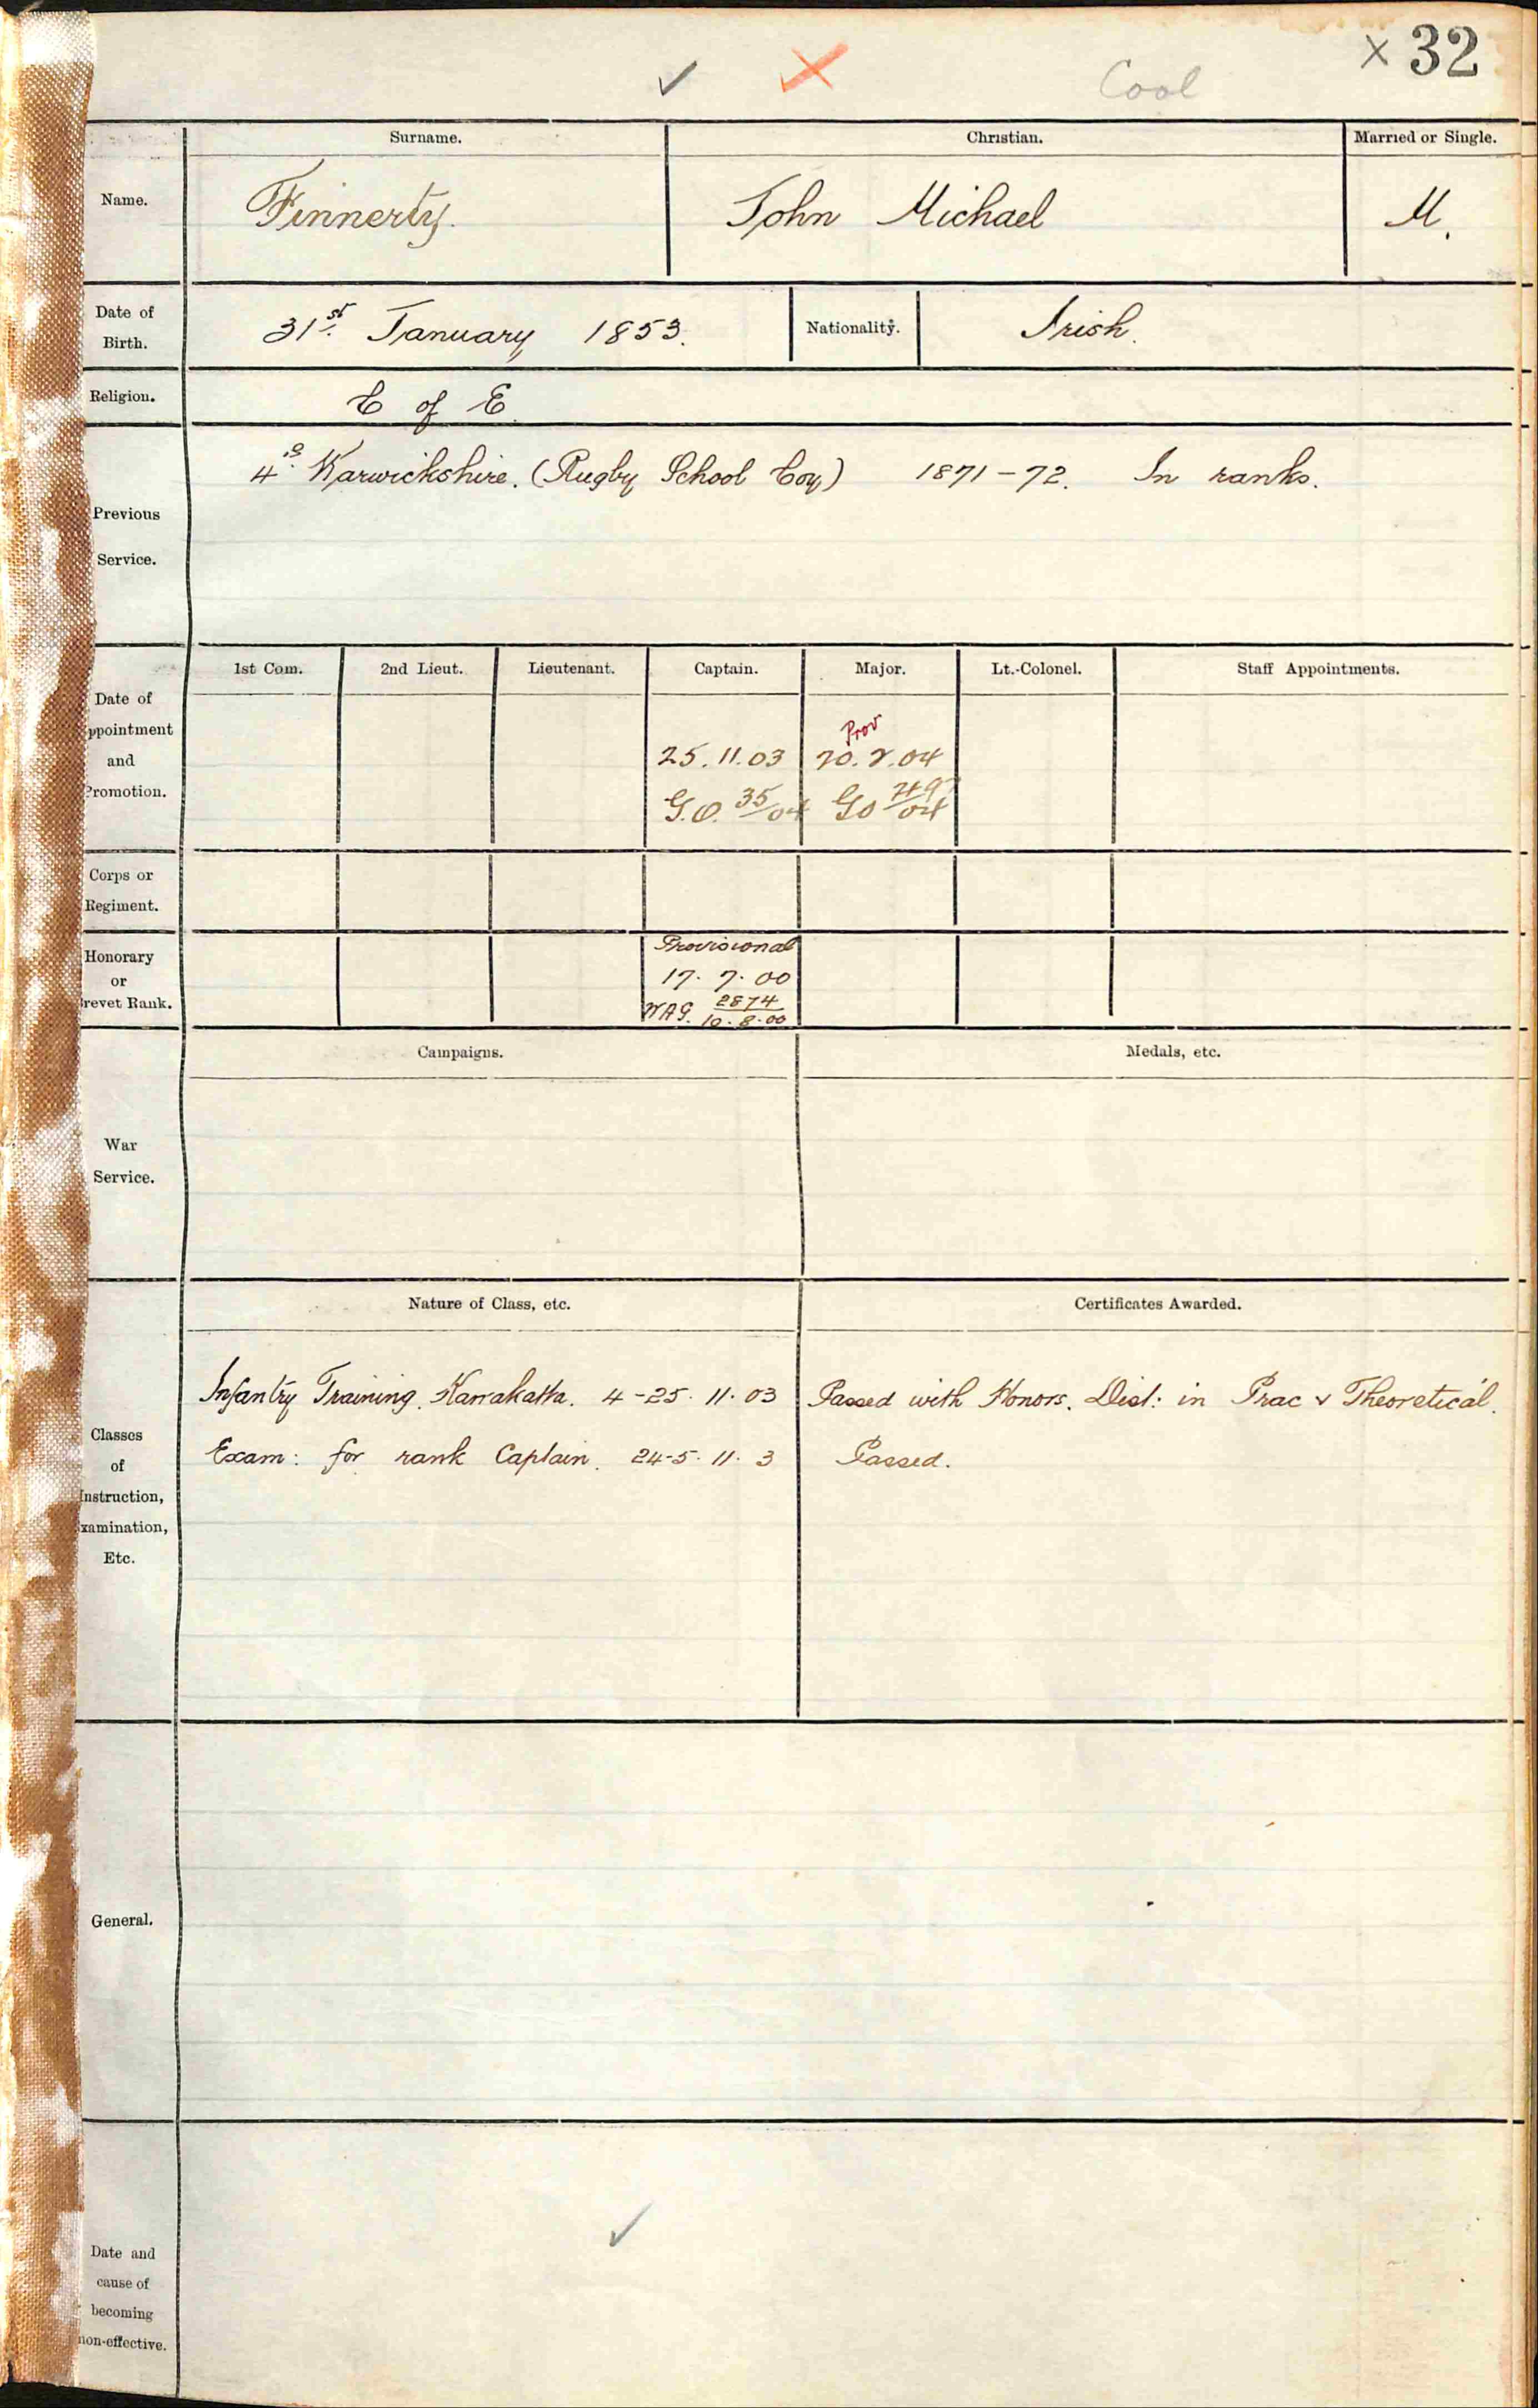 Cool × 32
Surname. Christian. Married or Single.
Name. Finnerty. John Michael M.
Date of Birth. 31st January 1853. Nationality. Irish.
Religion. C of E.
4th Warwickshire. (Rugby School Coy) 1871-72. In ranks.
Previous
Service.
1st Com. 2nd Lieut. Lieutenant. Captain. Major. Lt.-Colonel. Staff Appointments.
Date of
ppointment
and
Promotion.
Prov
25.11.03
G.O. 35/04 GO
Corps or
Regiment.
Honorary
or
revet Rank.
Provisional
17.7.00
WAG. 2874
10.8.00
Campaigns. Medals, etc.
War
Service.
Nature of Class, etc. Certificates Awarded.
Infantry Training. Karrakatta. 4-25.11.03 Passed with Honors. Dist: in Prac & Theoretical.
Exam: for rank Captain. 24-5.11.3 Passed.
Classes
of
Instruction,
xamination,
Etc.
General.
Date and
cause of
becoming
non-effective.